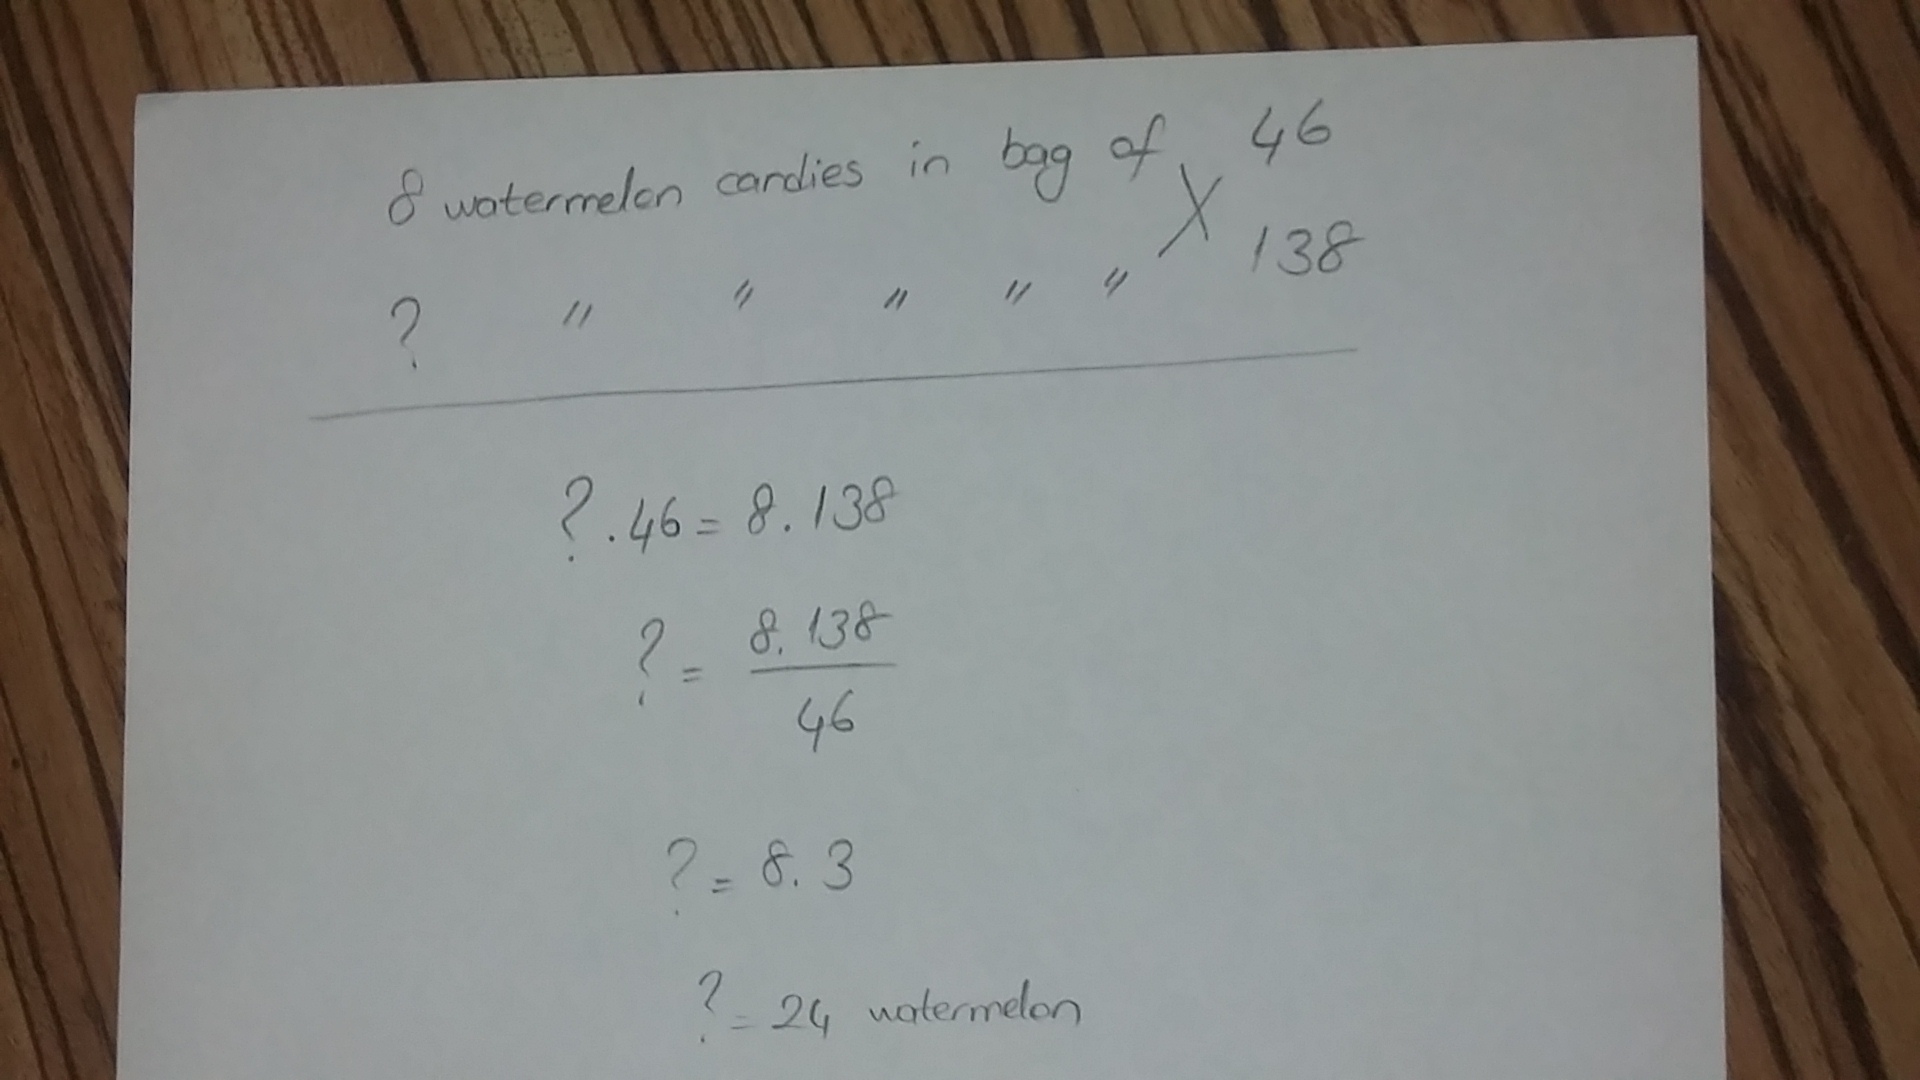 8 watermelon candies in bag of 46
X
? " " " " " 138
? . 46 = 8 . 138
? = 8. 138
46
? = 8. 3
? = 24 watermelon